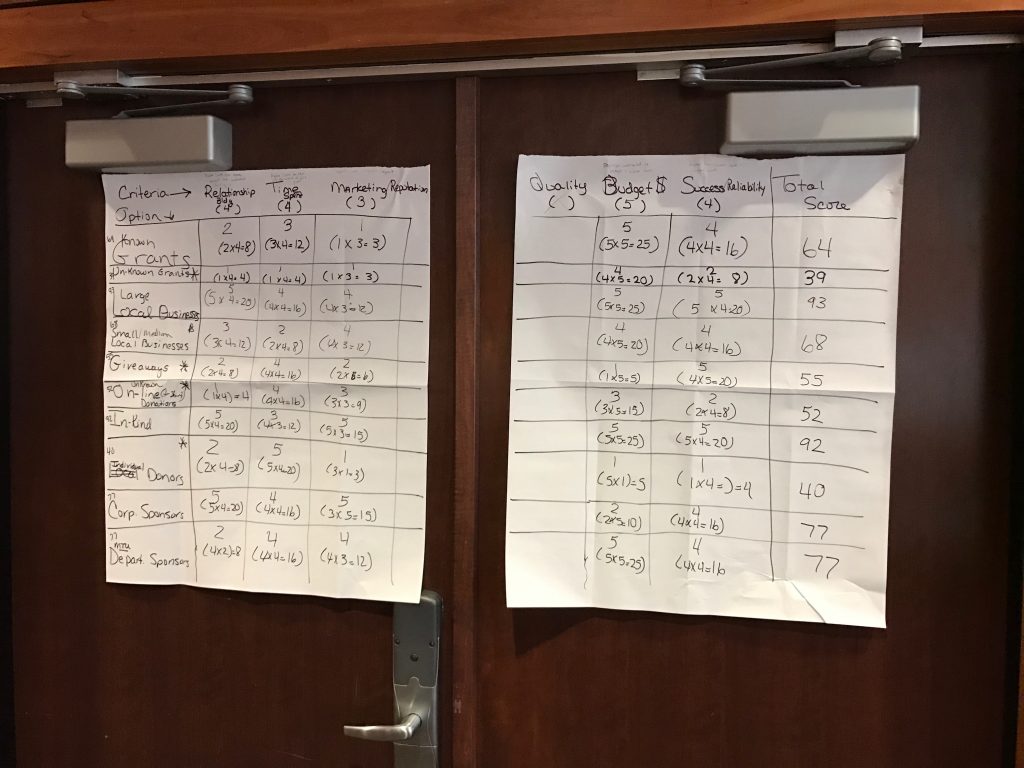 Criteria → Relationship Bldg (4) Time Spent (4) Marketing/Reputation (3)
Option ↓
64 Known Grants 2 (2x4=8) 3 (3x4=12) 1 (1x3=3)
UnKnown Grants * (1x4=4) 1 (1x4=4) 1 (1x3=3)
Large Local Businesses 5 (5x4=20) 4 (4x4=16) 4 (4x3=12)
68 Small/Medium Local Businesses 3 (3x4=12) 2 (2x4=8) 4 (4x3=12)
55 Giveaways * 2 (2x4=8) 4 (4x4=16) 2
unknown On-line Donations * (1x4)=4 4 (4x4=16) 3 (3x3=9)
92 In-Kind 5 (5x4=20) 3 (4x3=12) 5 (5x3=15)
40 Individual Donors * 2 (2x4=8) 5 (5x4=20) 1 (3x1=3)
77 Corp. Sponsors 5 (5x4=20) 4 (4x4=16) 5 (3x5=15)
77 MTU Depart. Sponsors 2 (4x2)=8 4 (4x4=16) 4 (4x3=12)
Quality ( ) Budget $ (5) Success Reliability (4) Total Score
5 (5x5=25) 4 (4x4=16) 64
4 (4x5=20) 2 (2x4=8) 39
5 (5x5=25) 5 (5x4=20) 93
4 (4x5=20) 4 (4x4=16) 68
(1x5=5) 5 (4x5=20) 55
3 (3x5=15) 2 (2x4=8) 52
5 (5x5=25) 5 (5x4=20) 92
1 (5x1)=5 1 (1x4=)=4 40
2 (2x5=10) 4 (4x4=16) 77
5 (5x5=25) 4 (4x4=16 77